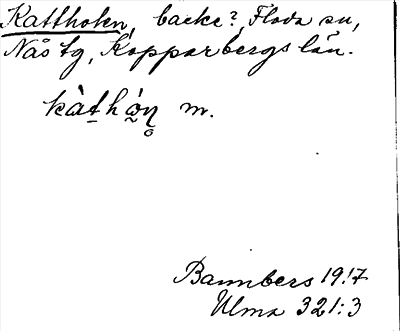 Kattholen, backe?, Floda sn,
Nås tg, Kopparbergs län.
kàt̠hó̤n̥ m.
Bannbers 1917
Ulma 321:3